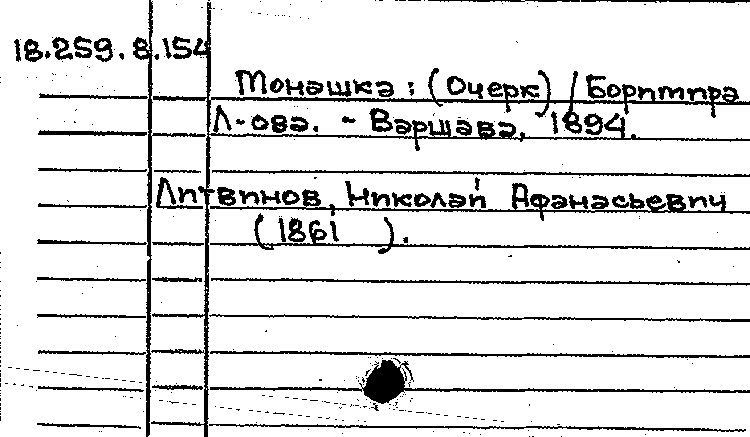 18.259.8.154
Монашка : (Очерк) / Бориптра
Л-ова. - Варшава, 1894.
Литвинов, Николай Афанасьевич
(1861 ).